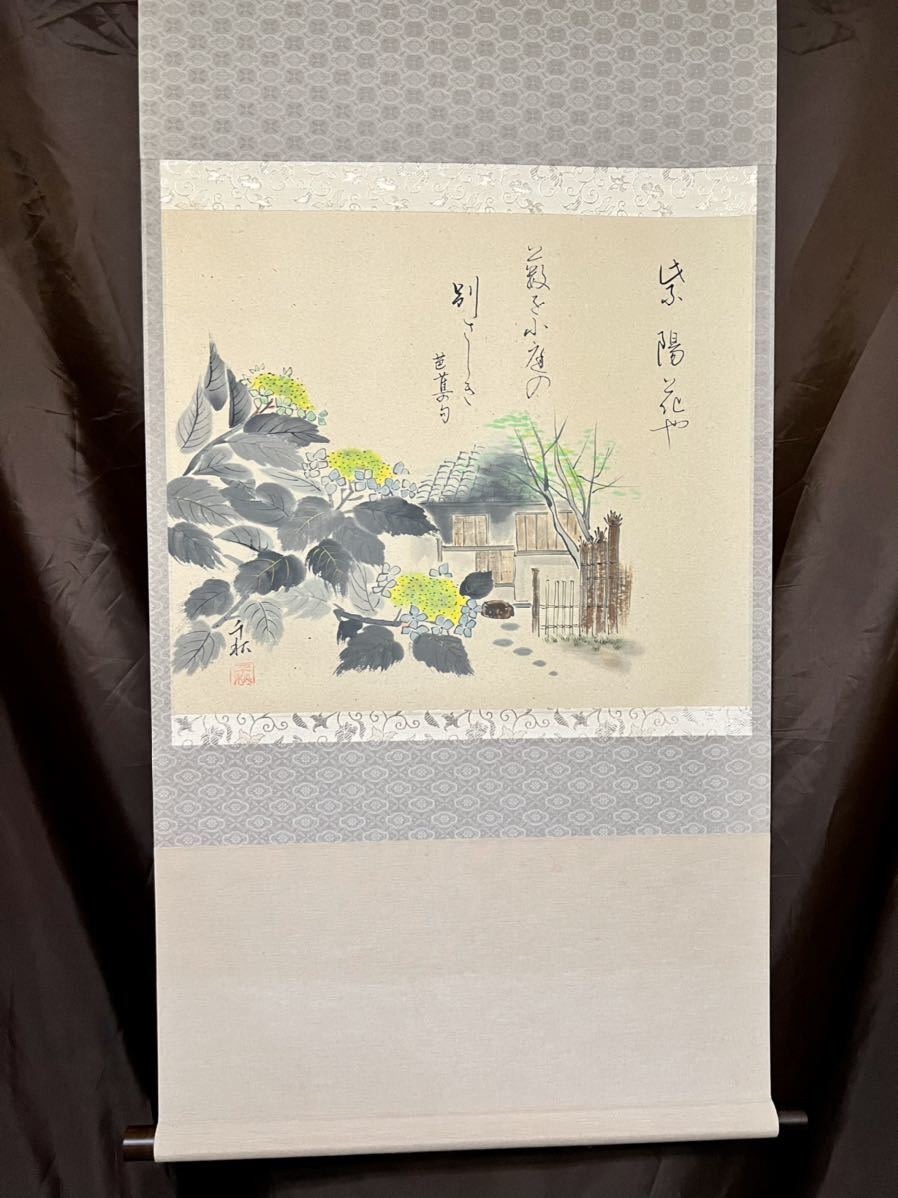 紫陽花や
藪を小庭の
別ざしき
芭蕉句
千秋